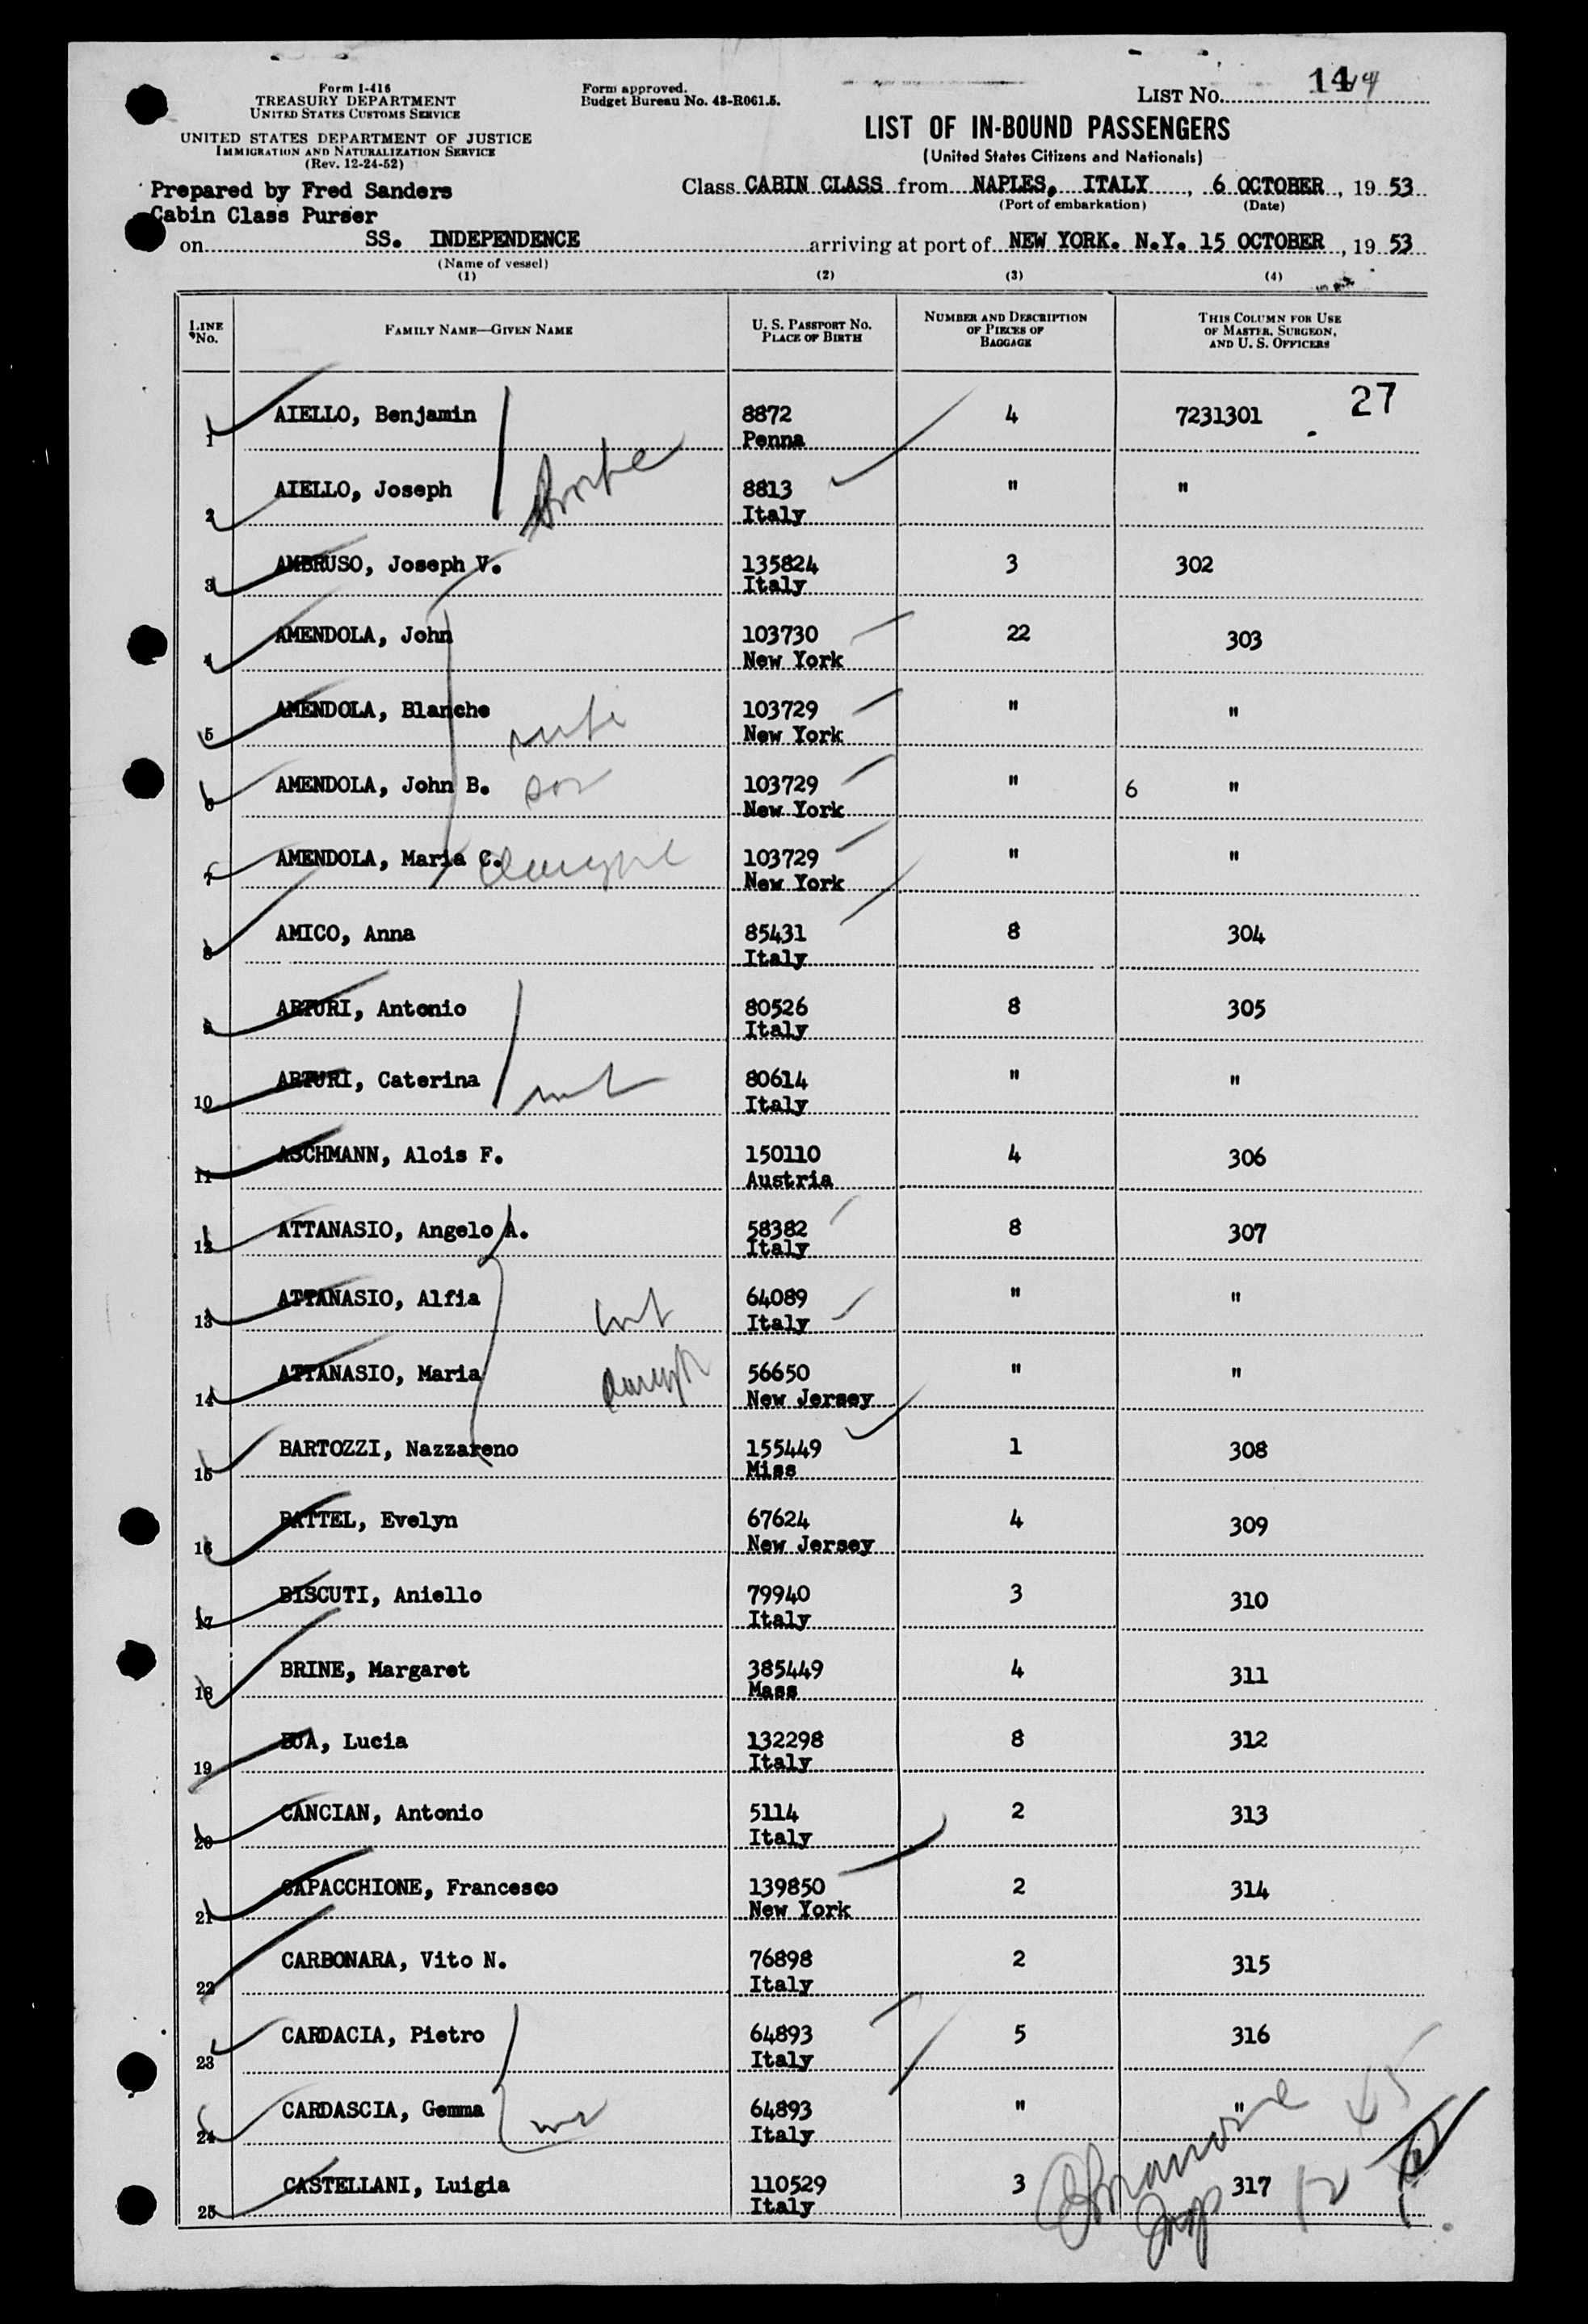 Form I-416
TREASURY DEPARTMENT
UNITED STATES CUSTOMS SERVICE
UNITED STATES DEPARTMENT OF JUSTICE
IMMIGRATION AND NATURALIZATION SERVICE
(Rev. 12-24-52)
Form approved.
Budget Bureau No. 43-R061.5.
LIST No. 14 14
LIST OF IN-BOUND PASSENGERS
(United States Citizens and Nationals)
Prepared by Fred Sanders
Cabin Class Purser
Class CABIN CLASS from NAPLES, ITALY, 6 OCTOBER, 19 53
(Port of embarkation) (Date)
on SS. INDEPENDENCE arriving at port of NEW YORK. N.Y. 15 OCTOBER, 19 53
(Name of vessel)
(1) (2) (3) (4)
LINE No. FAMILY NAME—GIVEN NAME U. S. PASSPORT No. PLACE OF BIRTH NUMBER AND DESCRIPTION OF PIECES OF BAGGAGE THIS COLUMN FOR USE OF MASTER, SURGEON, AND U. S. OFFICERS
27
1 AIELLO, Benjamin 8872 4 7231301
Penna
2 AIELLO, Joseph 8813 " "
Italy
3 AMBRUSO, Joseph V. 135824 3 302
Italy
4 AMENDOLA, John 103730 22 303
New York
5 AMENDOLA, Blanche 103729 " "
wife New York
6 AMENDOLA, John B. son 103729 " 6 "
New York
7 AMENDOLA, Maria C. 103729 " "
New York
8 AMICO, Anna 85431 8 304
Italy
9 ARTURI, Antonio 80526 8 305
Italy
10 ARTURI, Caterina 80614 " "
Italy
11 ASCHMANN, Alois F. 150110 4 306
Austria
12 ATTANASIO, Angelo A. 58382 8 307
Italy
13 ATTANASIO, Alfia 64089 " "
Italy
14 ATTANASIO, Maria 56650 " "
New Jersey
15 BARTOZZI, Nazzareno 155449 1 308
Miss
16 BATTEL, Evelyn 67624 4 309
New Jersey
17 BISCUTI, Aniello 79940 3 310
Italy
18 BRINE, Margaret 385449 4 311
Mass
19 BUA, Lucia 132298 8 312
Italy
20 CANCIAN, Antonio 5114 2 313
Italy
21 CAPACCHIONE, Francesco 139850 2 314
New York
22 CARBONARA, Vito N. 76898 2 315
Italy
23 CARDACIA, Pietro 64893 5 316
Italy
24 CARDASCIA, Gemma 64893 " "
Italy
25 CASTELLANI, Luigia 110529 3 317
Italy